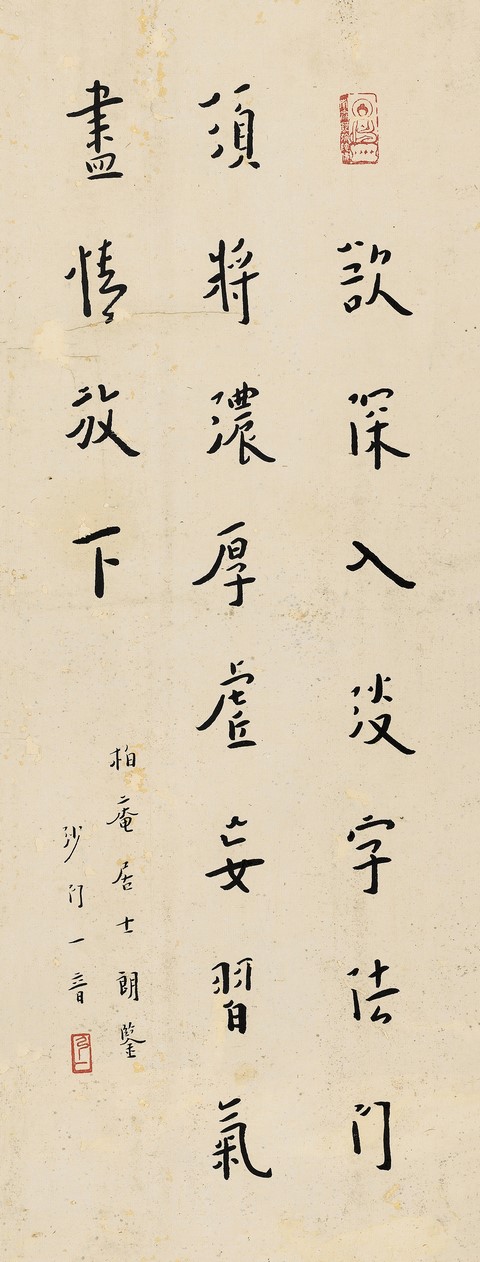 欲深入淡字法門
須將濃厚虛妄習氣
盡情放下
柏庵居士朗鑒
沙門一音